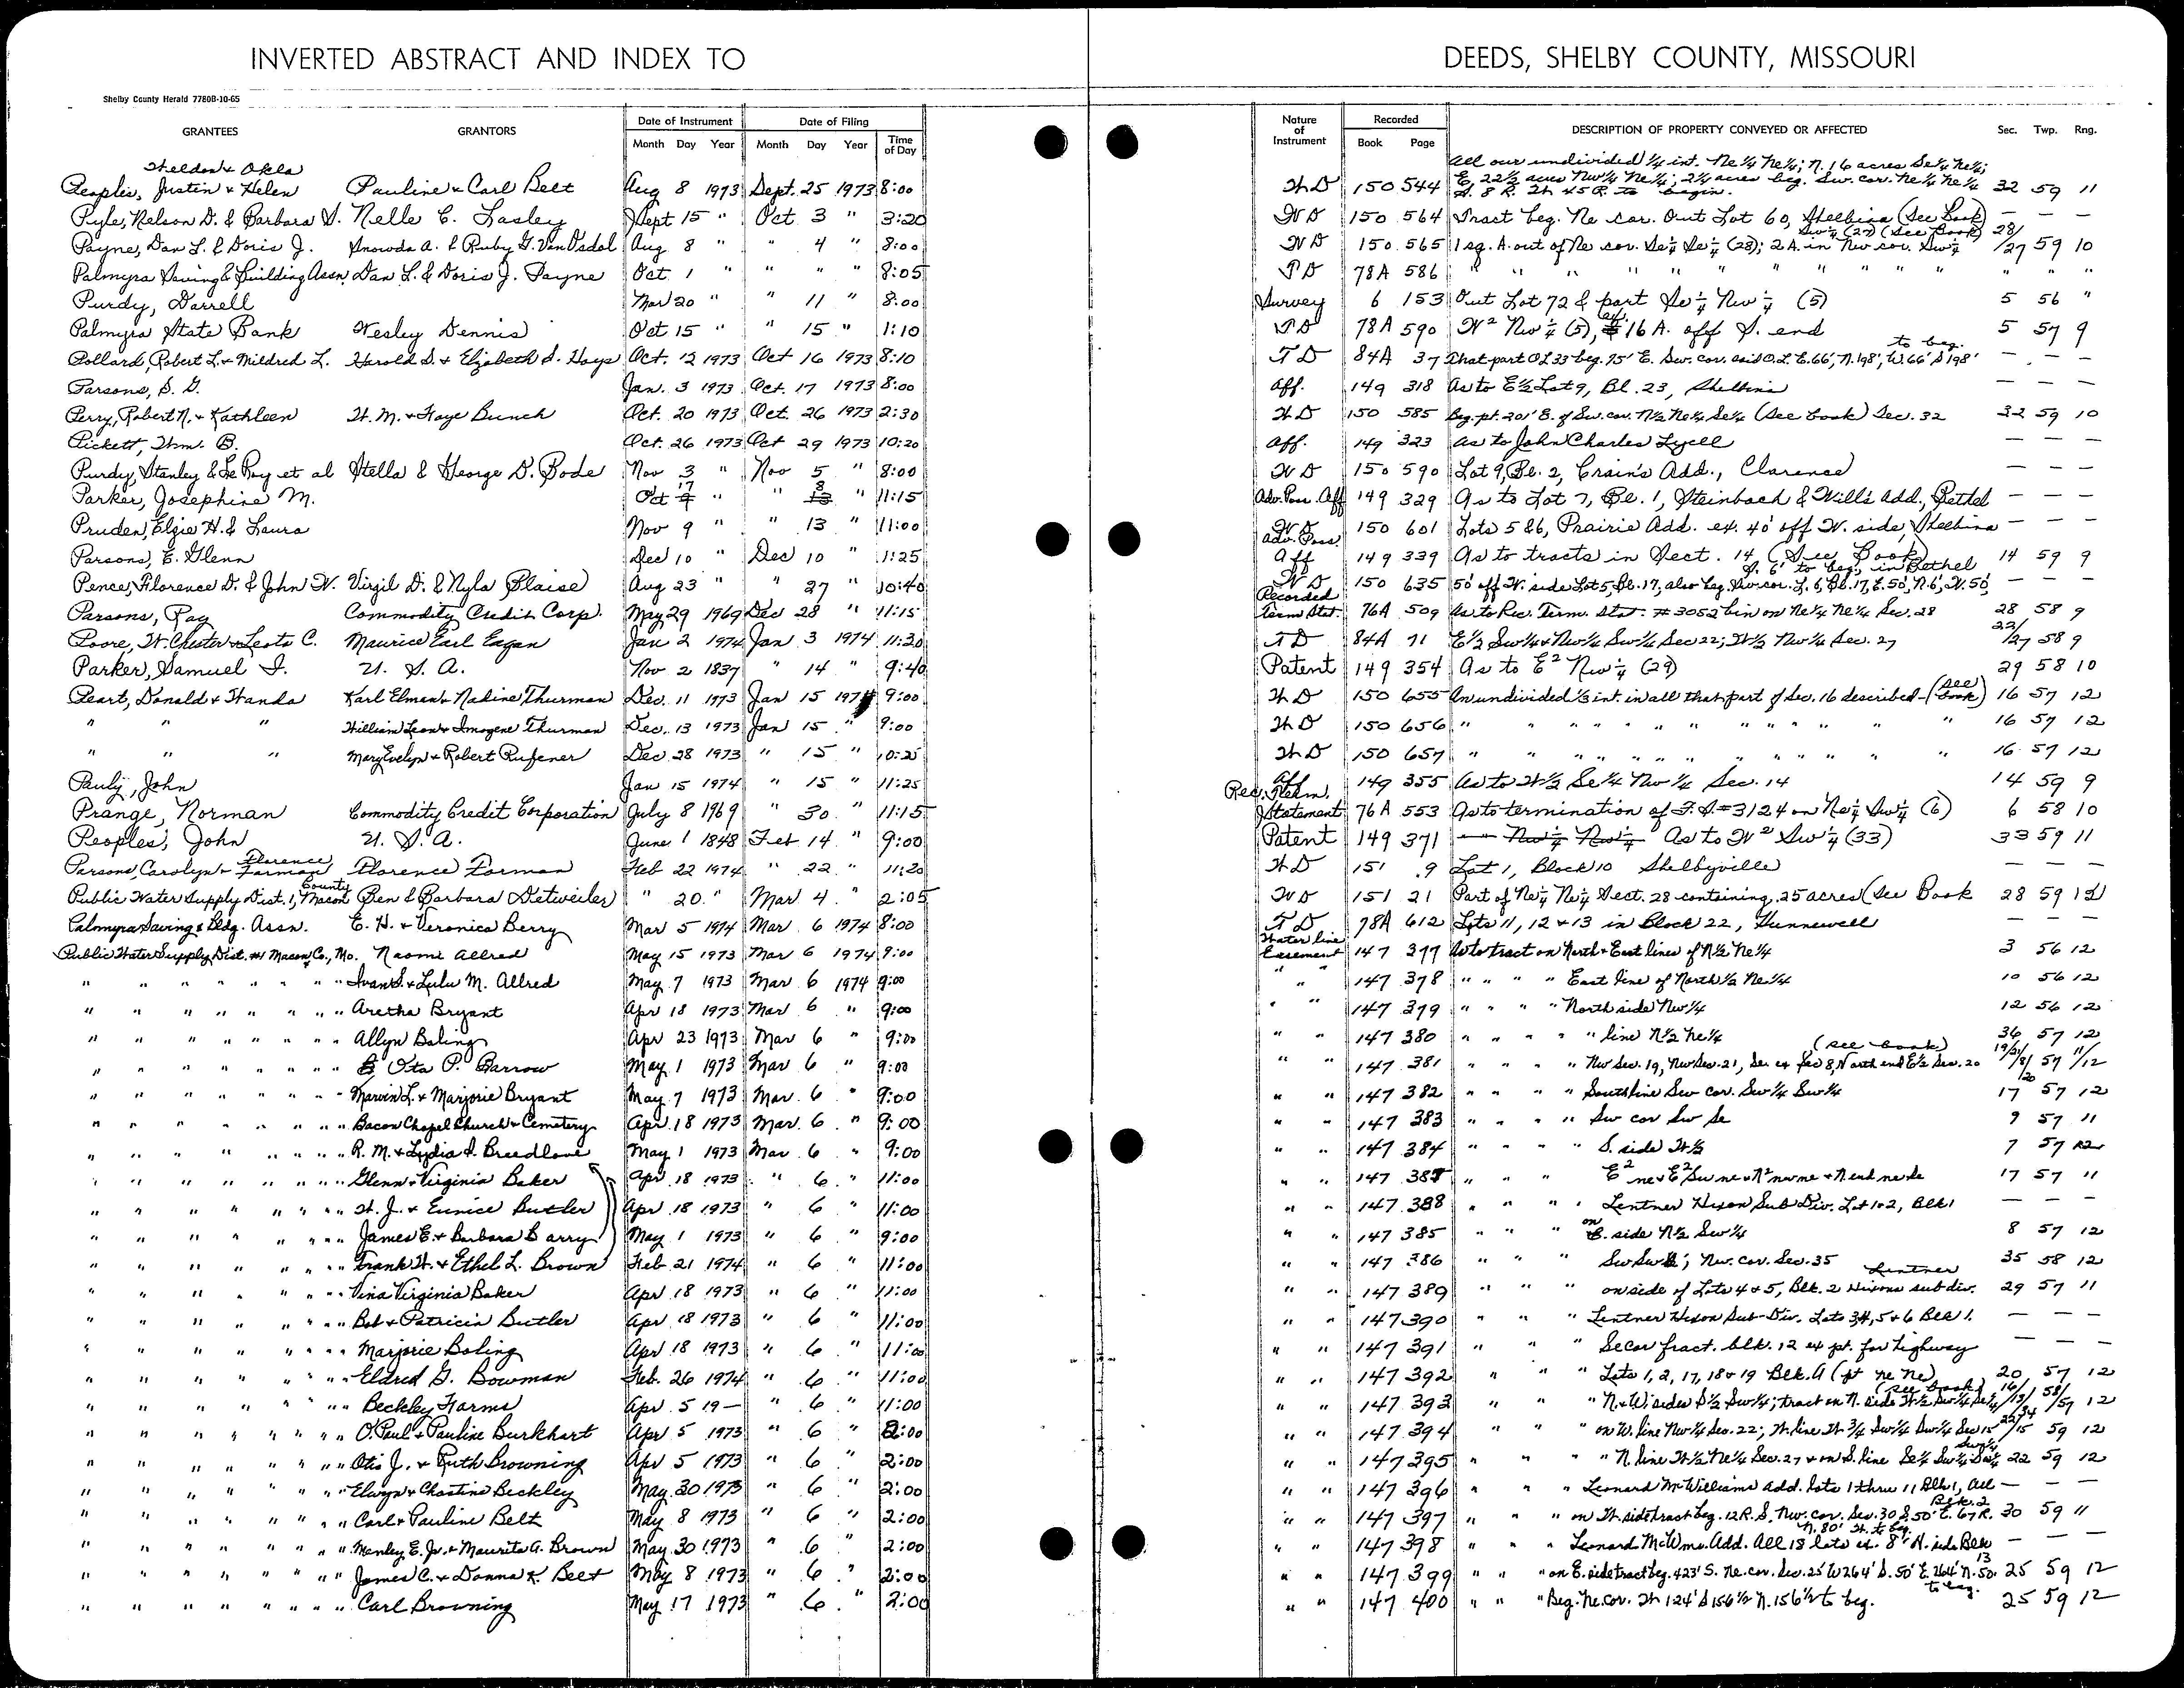 INVERTED ABSTRACT AND INDEX TO DEEDS, SHELBY COUNTY, MISSOURI
Shelby County Herald 7780B-10-65
GRANTEES GRANTORS Date of Instrument Date of Filing Nature of Instrument Recorded DESCRIPTION OF PROPERTY CONVEYED OR AFFECTED Sec. Twp. Rng.
Month Day Year Month Day Year Time of Day Book Page
Sheldon & Okla All our undivided 1/4 int. Ne 1/4 Ne 1/4; N. 16 acres Se 1/4 Ne 1/4;
Peoples, Justin & Helen Pauline & Carl Belt Aug 8 1973 Sept. 25 1973 8:00 W D 150 544 E. 22 1/2 acres Nw 1/4 Ne 1/4; 2 1/4 acres beg. Sw. cor. Ne 1/4 Ne 1/4 S. 8 R. W 45 R. to begin. 32 59 11
Pyle, Nelson D. & Barbara S. Nelle C. Lasley Sept 15 " Oct 3 " 3:20 W D 150 564 Tract beg. Ne cor. Out Lot 60, Shelbina (See Book) — — —
Payne, Dan L. & Doris J. Snowda A. & Ruby G. VanOsdol Aug 8 " " 4 " 8:00 W D 150 565 1 sq. A. out of Ne cor. Se 1/4 Se 1/4 (28); 2 A. in Nw cor. Sw 1/4 Sw 1/4 (27) (See Book) 28/27 59 10
Palmyra Saving & Building Assn. Dan L. & Doris J. Payne Oct 1 " " " " 8:05 T D 78A 586 " " " " " " " " " " " " "
Purdy, Darrell Mar 20 " " 11 " 8:00 Survey 6 153 Out Lot 72 & part Se 1/4 Nw 1/4 (5) 5 56 "
Palmyra State Bank Wesley Dennis Oct 15 " " 15 " 1:10 T D 78A 590 W 2 Nw 1/4 (5), ex 16 A. off S. end 5 57 9
Pollard, Robert L. & Mildred L. Harold D. & Elizabeth S. Hays Oct. 12 1973 Oct 16 1973 8:10 T D 84A 37 That part O L 33 beg. 75' E. Sw. cor. said O. L. E. 66', N. 198', W. 66' S 198' to beg. — — —
Parsons, S. G. Jan. 3 1973 Oct. 17 1973 8:00 Aff. 149 318 As to E 1/2 Lot 9, Bl. 23, Shelbina — — —
Perry, Robert N. & Kathleen W. M. & Faye Bunch Oct. 20 1973 Oct. 26 1973 2:30 W D 150 585 Beg. pt. 201' E. of Sw. cor. N 1/2 Ne 1/4 Se 1/4 (See book) Sec. 32 32 59 10
Pickett, Wm. B. Oct. 26 1973 Oct 29 1973 10:20 Aff. 149 323 As to John Charles Lycell — — —
Purdy, Stanley & Le Roy et al Stella & George D. Bode Nov 3 " Nov 5 " 8:00 W D 150 590 Lot 9, Bl. 2, Crain's Add., Clarence — — —
Parker, Josephine M. Oct 17 " " 8 " 11:15 Adv. Poss. Aff 149 329 As to Lot 7, Bl. 1, Steinbach & Will's Add., Bethel — — —
Pruden, Elzie H. & Laura Nov 9 " " 13 " 11:00 W D 150 601 Lots 5 & 6, Prairie Add. ex. 40' off W. side, Shelbina — — —
Parsons, E. Glenn Dec 10 " Dec 10 " 1:25 Adv. Poss. Aff 149 339 As to tracts in Sect. 14, (See Book) 14 59 9
Pence, Florence D. & John W. Virgil D. & Nyla Blaise Aug 23 " " 27 " 10:40 W D 150 635 50' off W. side Lot 5, Bl. 17, also beg. Sw. cor. L. 6, Bl. 17, E. 50', N. 6', W. 50', S. 6' to beg. in Bethel — — —
Parsons, Ray Commodity Credit Corp. May 29 1969 Dec 28 " 11:15 Recorded Term Stat. 76A 509 As to Rec. Term. Stat. #3052 bin on Ne 1/4 Ne 1/4 Sec. 28 28 58 9
Poore, W. Chester & Lesta C. Maurice Earl Eagan Jan 2 1974 Jan 3 1974 11:30 T D 84A 71 E 1/2 Sw 1/4 & Nw 1/4 Sw 1/4 Sec 22; W 1/2 Nw 1/4 Sec. 27 22/27 58 9
Parker, Samuel I. U. S. A. Nov 2 1837 " 14 " 9:40 Patent 149 354 As to E 2 Nw 1/4 (29) 29 58 10
Peart, Donald & Wanda Karl Elman & Nadine Thurman Dec. 11 1973 Jan 15 1974 9:00 W D 150 655 An undivided 1/3 int. in all that part of Sec. 16 described - (See book) 16 57 12
" " " William Leon & Imogene Thurman Dec. 13 1973 Jan 15 " 9:00 W D 150 656 " " " " " " " " " " 16 57 12
" " " Mary Evelyn & Robert Rufener Dec 28 1973 " 15 " 10:25 W D 150 657 " " " " " " " " " " 16 57 12
Pauly, John Jan 15 1974 " 15 " 11:25 Aff. 149 355 As to W 1/2 Se 1/4 Nw 1/4 Sec. 14 14 59 9
Prange, Norman Commodity Credit Corporation July 8 1969 " 30 " 11:15 Rec. Term. Statement 76A 553 As to termination of F. S. #3124 on Ne 1/4 Sw 1/4 (6) 6 58 10
Peoples, John U. S. A. June 1 1848 Feb 14 " 9:00 Patent 149 371 Nw 1/4 Nw 1/4 As to W 2 Sw 1/4 (33) 33 59 11
Parsons, Carolyn & Florence Forman Florence Forman Feb 22 1974 " 22 " 11:20 W D 151 9 Lot 1, Block 10 Shelbyville — — —
Public Water Supply Dist. 1, Macon County Ben & Barbara Detweiler " 20 " Mar 4 " 2:05 W D 151 21 Part of Ne 1/4 Ne 1/4 Sect. 28 containing .25 acres (See Book 28 59 12
Palmyra Saving & Bldg. Assn. E. H. & Veronica Berry Mar 5 1974 Mar. 6 1974 8:00 T D 78A 612 Lots 11, 12 & 13 in Block 22, Hunnewell — — —
Public Water Supply Dist. #1 Macon Co., Mo. Naomi Allred May 15 1973 Mar 6 1974 9:00 Water line Easement 147 377 As to tract on North & East lines of N 1/2 Ne 1/4 3 56 12
" " " " " " " " Ivan S. & Lulu M. Allred May 7 1973 Mar 6 1974 9:00 " " 147 378 " " " " East line of North 1/2 Ne 1/4 10 56 12
" " " " " " " " Aretha Bryant Apr 18 1973 Mar 6 " 9:00 " " 147 379 " " " " North side Nw 1/4 12 56 12
" " " " " " " " Allyn Boling Apr 23 1973 Mar 6 " 9:00 " " 147 380 " " " " " line N 1/2 Ne 1/4 36 57 12
" " " " " " " " Ota P. Barrow May 1 1973 Mar 6 " 9:00 " " 147 381 " " " " Nw Sec. 19, Nw Sec. 21, Se. ex Sec 8, North end E 1/2 Sec. 20 (see book) 19/21/8/20 57 11/12
" " " " " " " " Marvin L. & Marjorie Bryant May 7 1973 Mar. 6 " 9:00 " " 147 382 " " " " South line Sw cor. Sw 1/4 Sw 1/4 17 57 12
" " " " " " " " Bacon Chapel Church & Cemetery Apr. 18 1973 Mar. 6 " 9:00 " " 147 383 " " " " Sw cor Sw Se 9 57 11
" " " " " " " " R. M. & Lydia S. Breedlove May 1 1973 Mar 6 " 9:00 " " 147 384 " " " " S. side W 1/2 7 57 12
" " " " " " " " Glenn & Virginia Baker Apr. 18 1973 " 6 " 11:00 " " 147 387 " " " E 2 ne & E 2 Sw ne & N 2 nw ne & N end ne se 17 57 11
" " " " " " " " W. J. & Eunice Butler Apr 18 1973 " 6 " 11:00 " " 147 388 " " " " Lentner Hixon Sub Div. Lot 1 & 2, Blk 1 — — —
" " " " " " " " James E. & Barbara Barry May 1 1973 " 6 " 9:00 " " 147 385 " " " on E. side N 1/2 Sw 1/4 8 57 12
" " " " " " " " Frank W. & Ethel L. Brown Feb. 21 1974 " 6 " 11:00 " " 147 386 " " " Sw Sw; Nw. cor. Sec. 35 35 58 12
" " " " " " " " Vina Virginia Baker Apr 18 1973 " 6 " 11:00 " " 147 389 " " " on side of Lots 4 & 5, Blk. 2 Hixons sub div. Lentner 29 57 11
" " " " " " " " Bob & Patricia Butler Apr. 18 1973 " 6 " 11:00 " " 147 390 " " " Lentner Hixon Sub-Div. Lots 3 4, 5 & 6 Blk 1. — — —
" " " " " " " " Marjorie Boling Apr 18 1973 " 6 " 11:00 " " 147 391 " " " Se cor fract. blk. 12 ex pt. for highway — — —
" " " " " " " " Eldred G. Bowman Feb. 26 1974 " 6 " 11:00 " " 147 392 " " " Lots 1, 2, 17, 18 & 19 Blk. A (pt Ne Ne) 20 57 12
" " " " " " " " Beckley Farms Apr. 5 19— " 6 " 11:00 " " 147 393 " " " N. & W. sides S 1/2 Sw 1/4; tract on N. side W 1/2 Sw 1/4 Se 1/4 (see book) 12
" " " " " " " " O. Paul & Pauline Burkhart Apr 5 1973 " 6 " 2:00 " " 147 394 " " " on W. line Nw 1/4 Sec. 22; W. line W 3/4 Sw 1/4 Sw 1/4 Sec 15 22/15 59 12
" " " " " " " " Otis J. & Ruth Browning Apr 5 1973 " 6 " 2:00 " " 147 395 " " " N. line W 1/2 Ne 1/4 Sec. 27 & on S. line Se 1/4 Sw 1/4 22 59 12
" " " " " " " " Elwyn & Chastine Beckley May 30 1973 " 6 " 2:00 " " 147 396 " " " Leonard McWilliams Add. lots 1 thru 11 Blk 1, All Blk. 2 — — —
" " " " " " " " Carl & Pauline Belt May 8 1973 " 6 " 2:00 " " 147 397 " " " on W. side tract beg. 12 R. S. Nw. cor. Sec. 30 S. 50' E. 67 R. N. 80' W. to beg. 30 59 11
" " " " " " " " Manley E. Jr. & Maurita A. Brown May 30 1973 " 6 " 2:00 " " 147 398 " " " Leonard McWms. Add. All 18 lots ex. 8' N. side Blk 13 — — —
" " " " " " " " James C. & Donna K. Belt May 8 1973 " 6 " 2:00 " " 147 399 " " " on E. side tract beg. 423' S. Ne. cor. Sec. 25 W 264' S. 50' E. 264' N. 50' to beg. 25 59 12
" " " " " " " " Carl Browning May 17 1973 " 6 " 2:00 " " 147 400 " " " Beg. Ne. cor. W 124' S 156 1/2 N. 156 1/2 to beg. 25 59 12